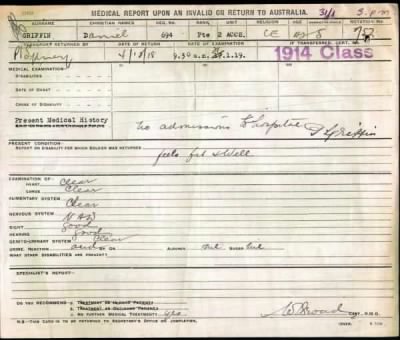 MEDICAL REPORT UPON AN INVALID ON RETURN TO AUSTRALIA. 31/1 3. p.m
SURNAME CHRISTIAN NAMES REG. NO. RANK UNIT RELIGION AGE IF TRANSFERRED, CERT. NO. NOTATION NO.
GRIFFIN Daniel 694 Pte 2 ACCS. CE
TRANSPORT RETURNED BY DATE OF RETURN
4/12/18 1.19. 1914 Class
MEDICAL EXAMINATION
DISABILITIES
DATE OF ONSET
CAUSE OF DISABILITY
Present Medical History
no admissions to hospital D Griffin
PRESENT CONDITION:
REPORT ON DISABILITY FOR WHICH SOLDIER WAS RETURNED
feels fit & well
EXAMINATION OF
HEART Clear
LUNGS Clear
ALIMENTARY SYSTEM Clear
NERVOUS SYSTEM NAD
SIGHT good
HEARING good
GENITO-URINARY SYSTEM Clear
URINE, REACTION acid ALBUMEN nil SUGAR nil
WHAT OTHER DISABILITIES ARE PRESENT?
SPECIALIST'S REPORT
DO YOU RECOMMEND 1. TREATMENT AS INDOOR PATIENT?
2. TREATMENT AS OUTDOOR PATIENT?
3. NO FURTHER MEDICAL TREATMENT? yes
CAPT. P.M.O.
N.B.—THIS CARD IS TO BE RETURNED TO SECRETARY'S OFFICE ON COMPLETION. (OVER.